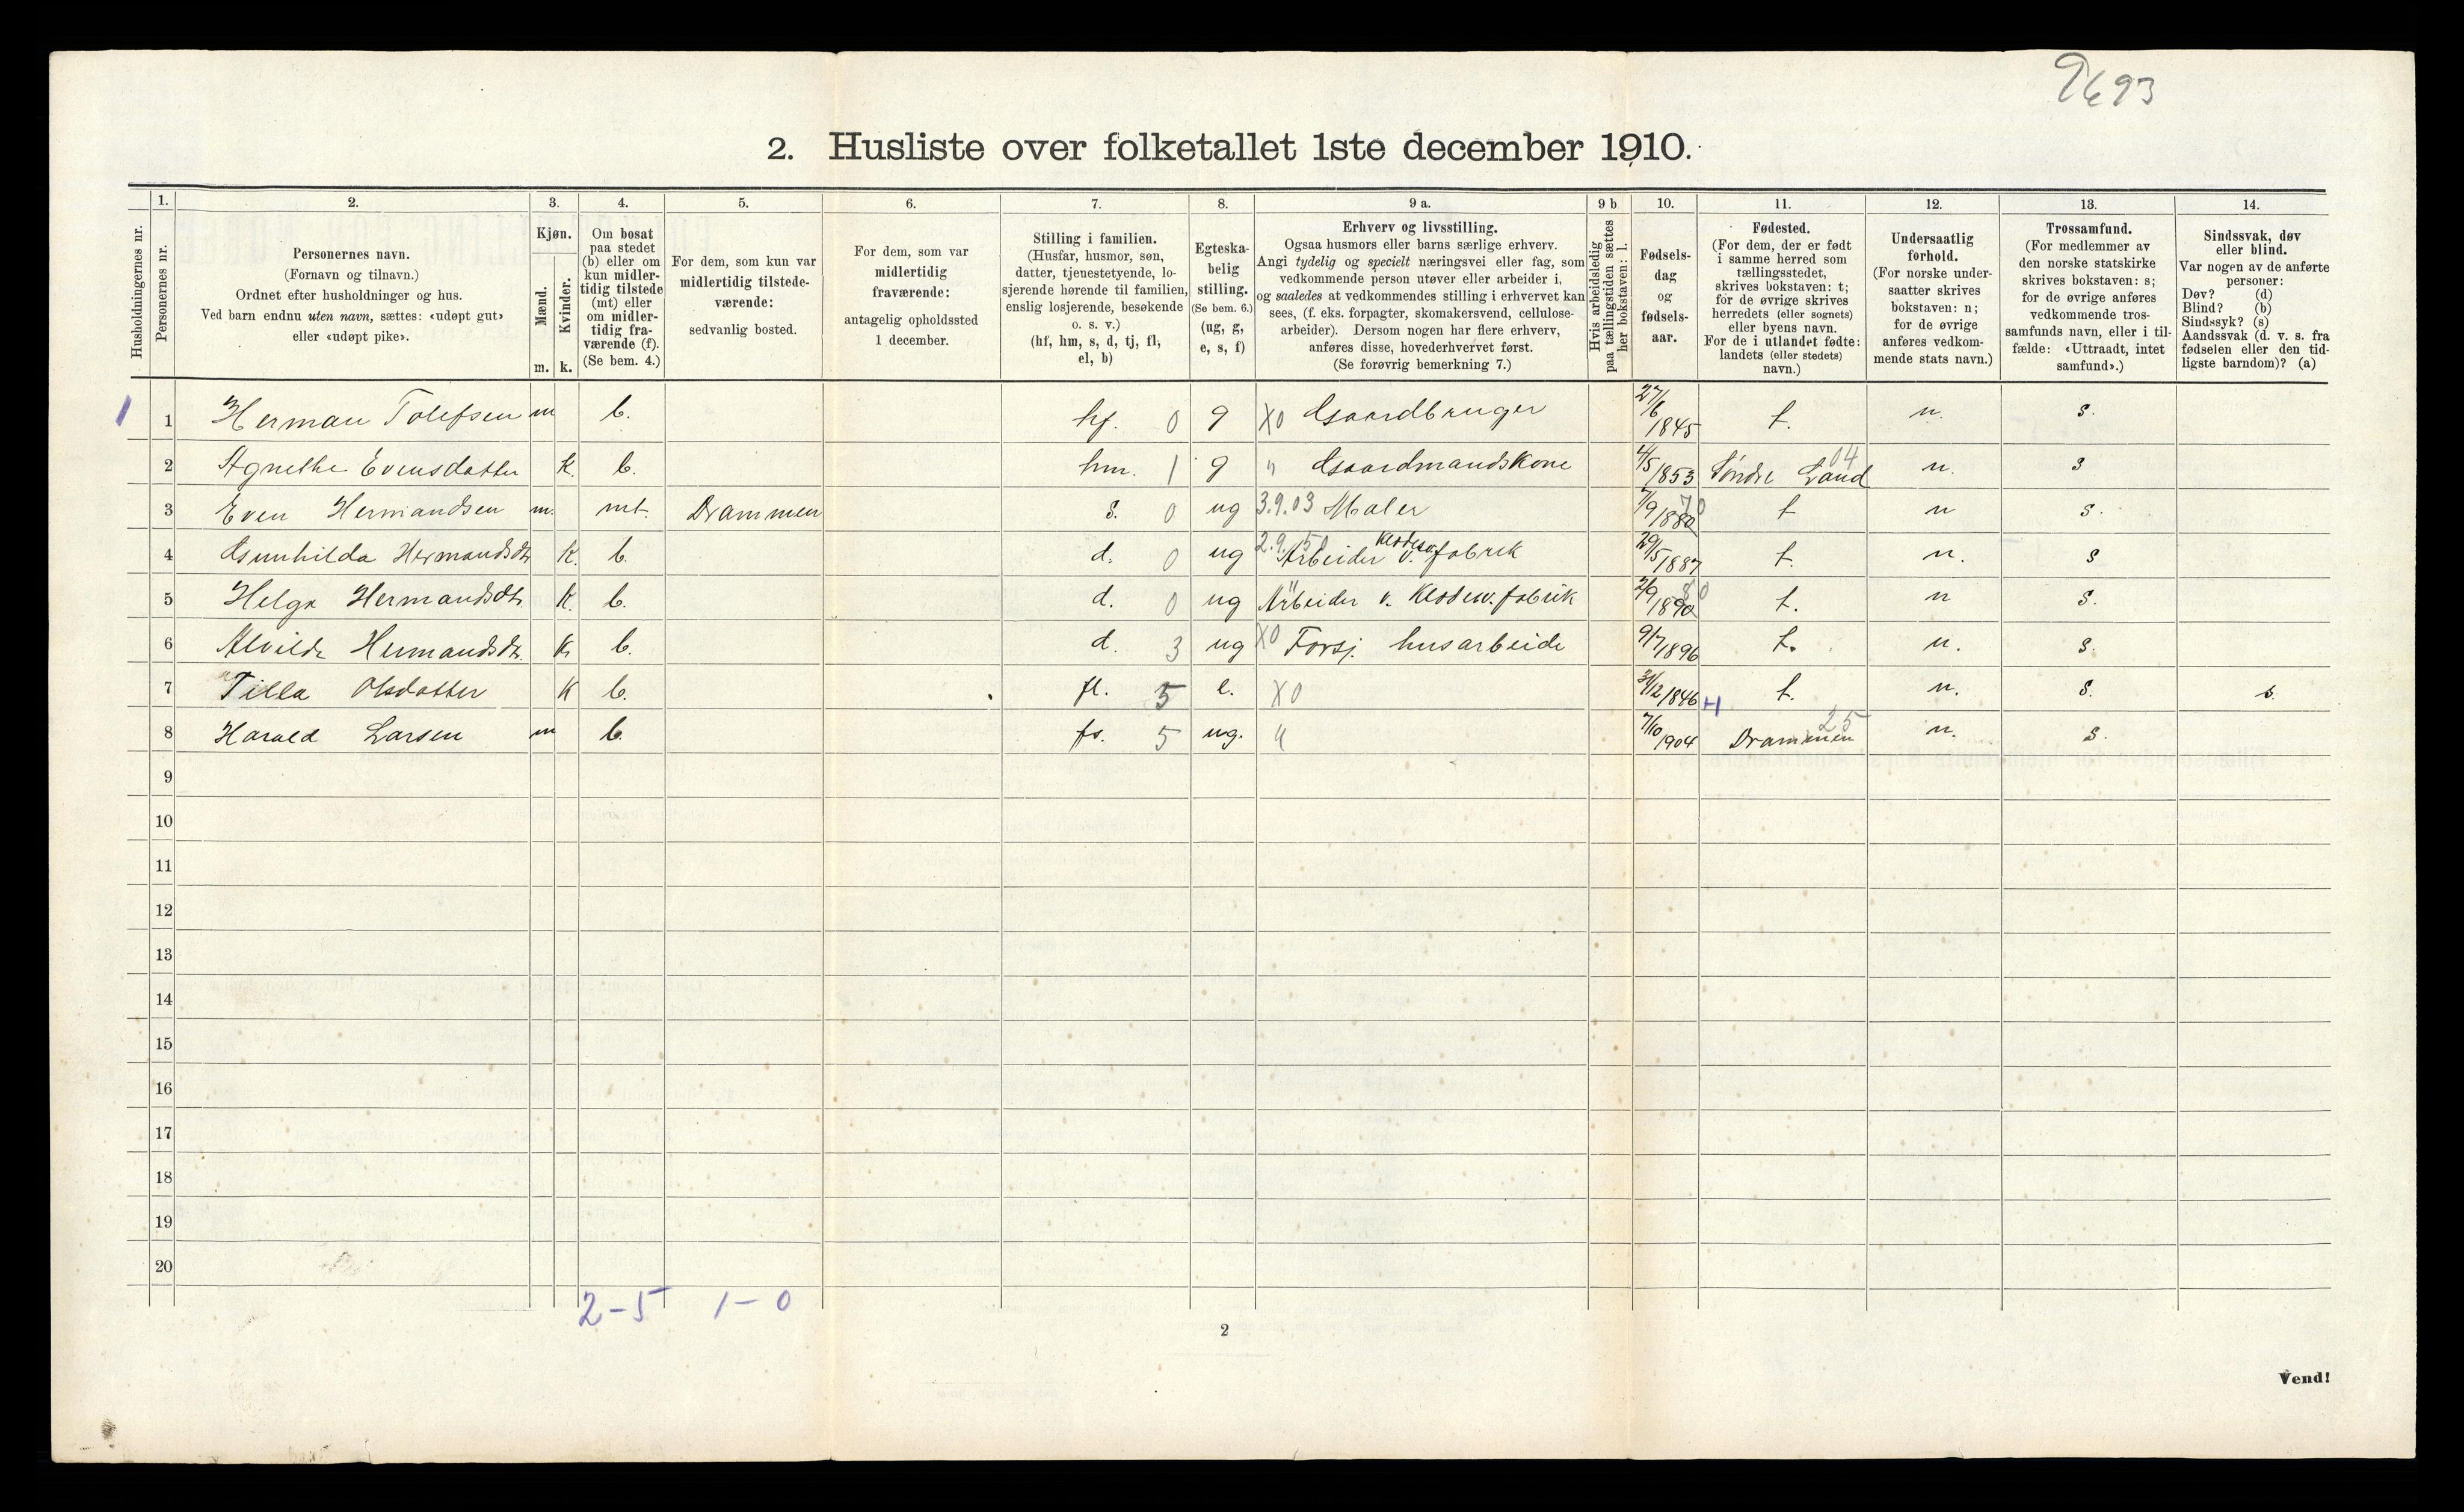 9693
2. Husliste over folketallet 1ste december 1910.
Husholdningernes nr.
1.
Personernes nr.
2.
Personernes navn.
(Fornavn og tilnavn.)
Ordnet efter husholdninger og hus.
Ved barn endnu uten navn, sættes: «udøpt gut»
eller «udøpt pike».
3.
Kjøn.
Mænd.
Kvinder.
m. k.
4.
Om bosat
paa stedet
(b) eller om
kun midler-
tidig tilstede
(mt) eller
om midler-
tidig fra-
værende (f).
(Se bem. 4.)
5.
For dem, som kun var
midlertidig tilstede-
værende:
sedvanlig bosted.
6.
For dem, som var
midlertidig
fraværende:
antagelig opholdssted
1 december.
7.
Stilling i familien.
(Husfar, husmor, søn,
datter, tjenestetyende, lo-
sjerende hørende til familien,
enslig losjerende, besøkende
o. s. v.)
(hf, hm, s, d, tj, fl,
el, b)
8.
Egteska-
belig
stilling.
(Se bem. 6.)
(ug, g,
e, s, f)
9 a.
Erhverv og livsstilling.
Ogsaa husmors eller barns særlige erhverv.
Angi tydelig og specielt næringsvei eller fag, som
vedkommende person utøver eller arbeider i,
og saaledes at vedkommendes stilling i erhvervet kan
sees, (f. eks. forpagter, skomakersvend, cellulose-
arbeider). Dersom nogen har flere erhverv,
anføres disse, hovederhvervet først.
(Se forøvrig bemerkning 7.)
9 b
Hvis arbeidsledig
paa tællingstiden sættes
her bokstaven: l.
10.
Fødsels-
dag
og
fødsels-
aar.
11.
Fødested.
(For dem, der er født
i samme herred som
tællingsstedet,
skrives bokstaven: t;
for de øvrige skrives
herredets (eller sognets)
eller byens navn.
For de i utlandet fødte:
landets (eller stedets)
navn.)
12.
Undersaatlig
forhold.
(For norske under-
saatter skrives
bokstaven: n;
for de øvrige
anføres vedkom-
mende stats navn.)
13.
Trossamfund.
(For medlemmer av
den norske statskirke
skrives bokstaven: s;
for de øvrige anføres
vedkommende tros-
samfunds navn, eller i til-
fælde: «Uttraadt, intet
samfund».)
14.
Sindssvak, døv
eller blind.
Var nogen av de anførte
personer:
Døv? (d)
Blind? (b)
Sindssyk? (s)
Aandssvak (d. v. s. fra
fødselen eller den tid-
ligste barndom)? (a)
1 1 Herman Tolefsen m b. hf. 0 g X0 Gaardbruger 27/6 1845 t. n. s.
2 Agnethe Evensdatter K. b. hm. 1 g " Gaardmandskone 4/5 1853 Søndre Land 04 n. s
3 Even Hermandsen m. mt. Drammen s. 0 ug 3.9.03 Maler 7/9 1880 70 t n s.
4 Gunhilda Hermandsdtr K. b. d. 0 ug 2.9. 50 Arbeider v. Klædesv. fabrik 29/5 1887 t. n. s
5 Helga Hermandsdtr. K. b. d. 0 ug " Arbeider v. Klædesv. fabrik 2/9 1890 80 t. n s.
6 Alvilde Hermandsdtr. K b. d. 3 ug X0 Forsj. husarbeide 9/7 1896 t. n. s.
7 Tilla Olsdatter K b. fl. 5 e. X0 31/12 1846 H t. n. s. s.
8 Harald Larsen m b. fs. 5 ug. " 7/10 1904 Drammen 25 n. s.
9
10
11
12
13
14
15
16
17
18
19
20
2-5 1-0
2
Vend!